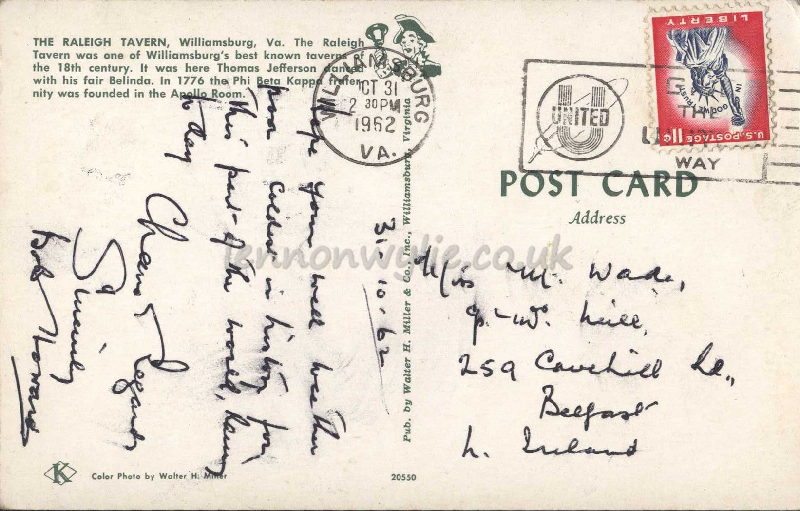 THE RALEIGH TAVERN, Williamsburg, Va. The Raleigh
Tavern was one of Williamsburg's best known taverns of
the 18th century. It was here Thomas Jefferson danced
with his fair Belinda. In 1776 the Phi Beta Kappa frater-
nity was founded in the Apollo Room.
WILLIAMSBURG
OCT 31
2 30PM
1962
VA.
UNITED
THE
UNITED
WAY
LIBERTY
IN GOD WE TRUST
U.S. POSTAGE 11¢
POST CARD
Address
31-10-62
Hope your well weather
poor coldest in history for
this part of the world,
today
Regards
Sincerely
Bob Howard
Pub. by Walter H. Miller & Co., Inc., Williamsburg, Virginia
Miss M. Wade,
259 Cavehill Rd.,
Belfast
N. Ireland
lennonwylie.co.uk
K
Color Photo by Walter H. Miller
20550